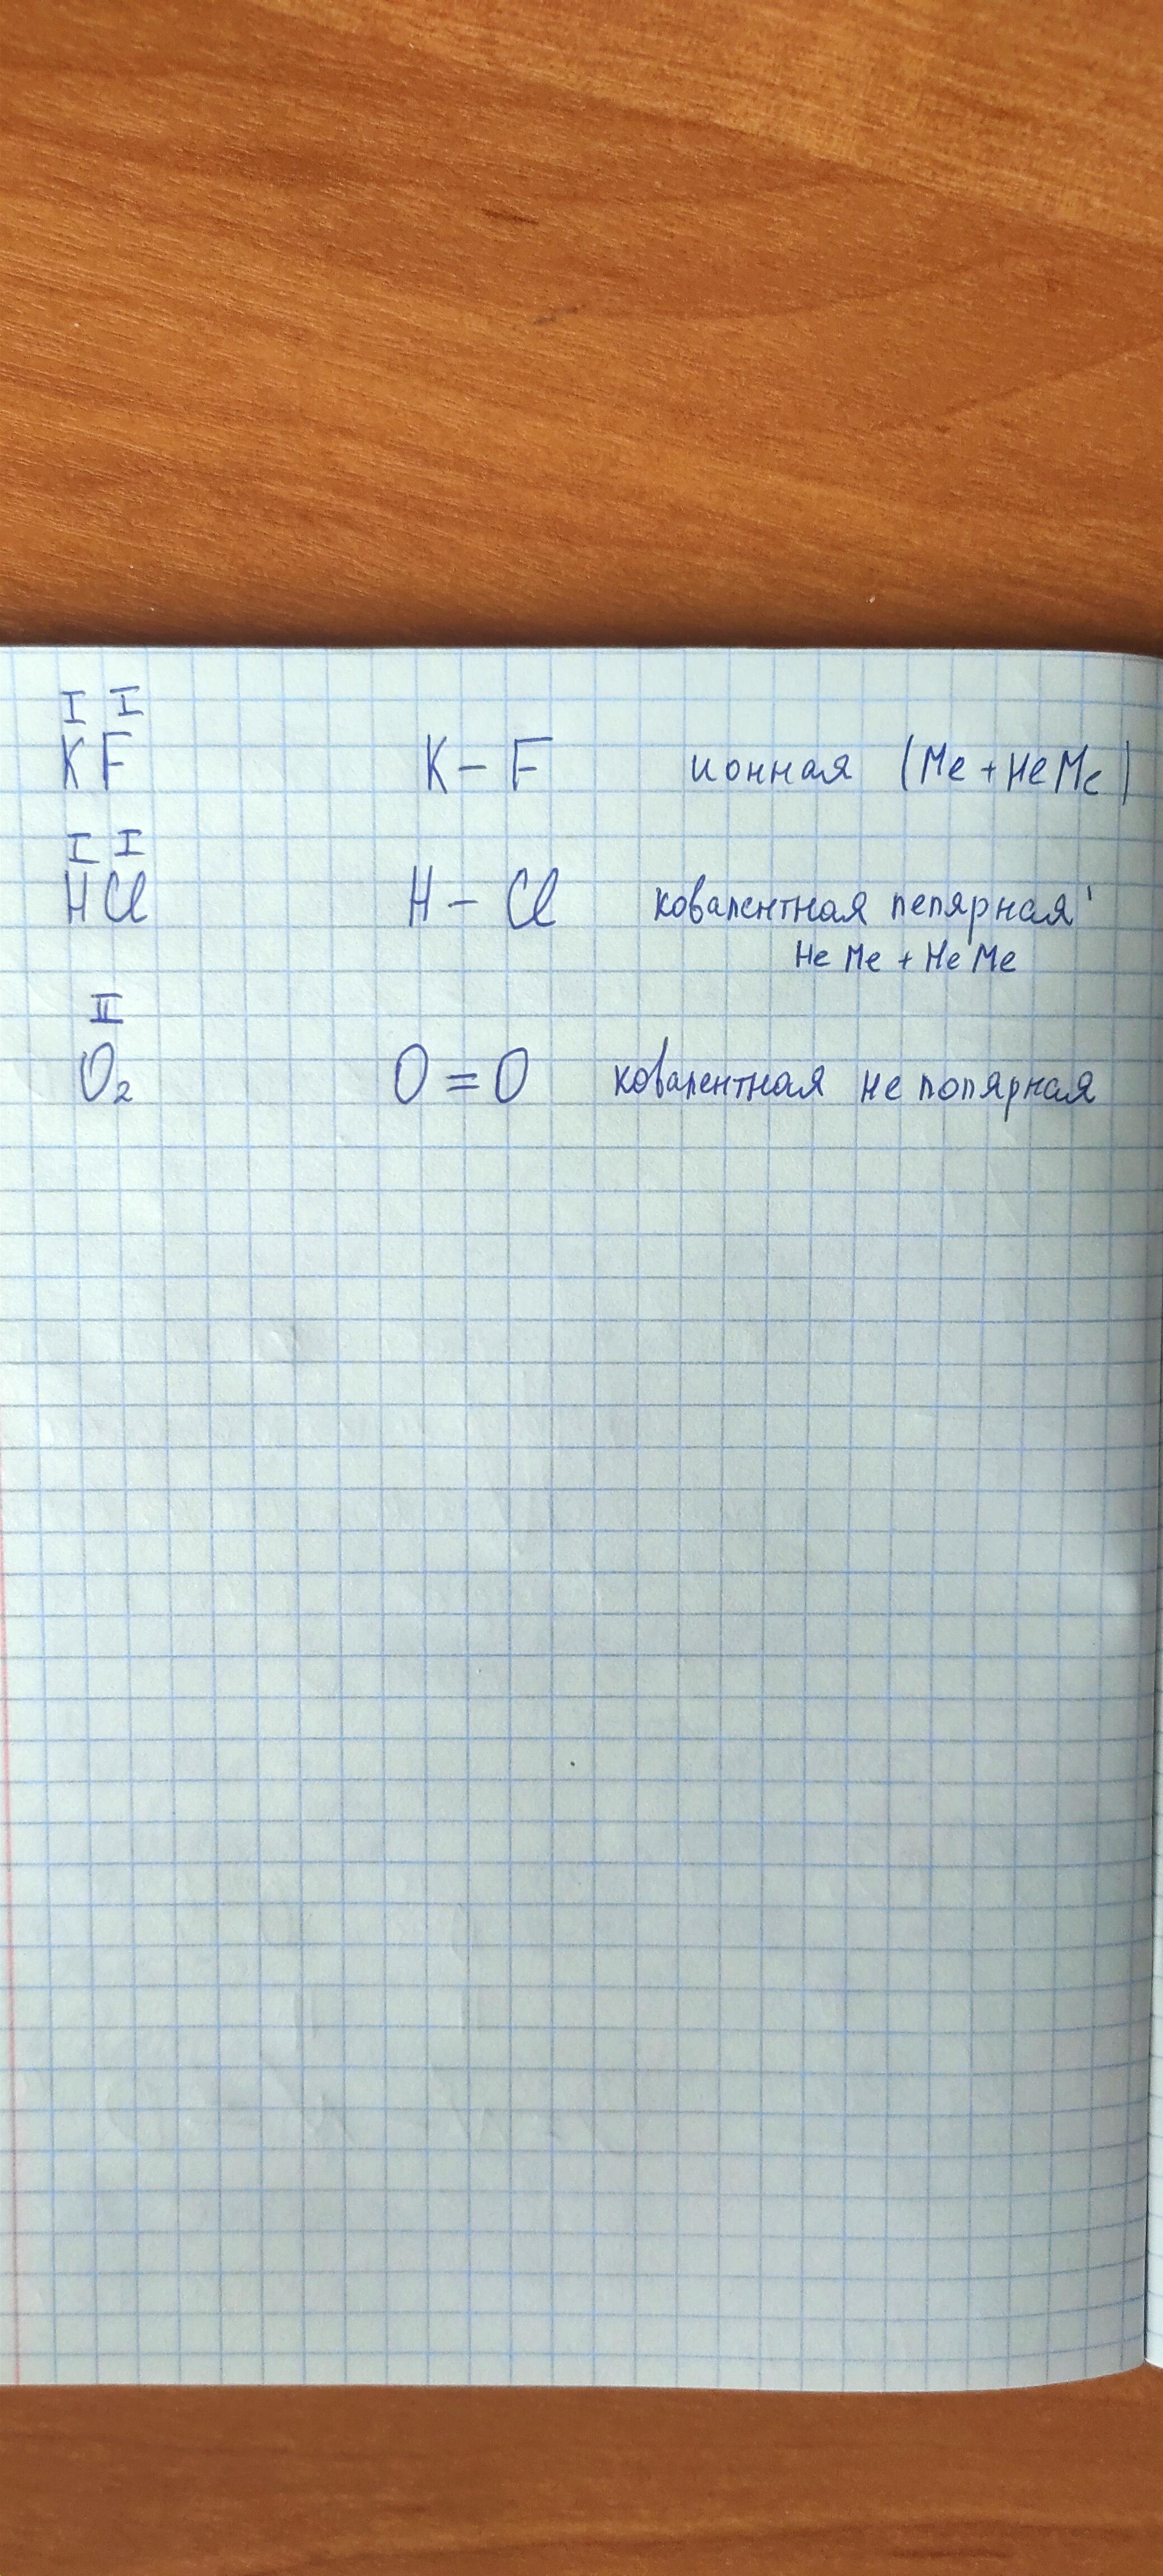 I I
KF K – F ионная (Me + НеМе)
I I
HCl H – Cl ковалентная пепярная
Не Ме + Не Ме
II
O₂ O = O ковалентная не полярная